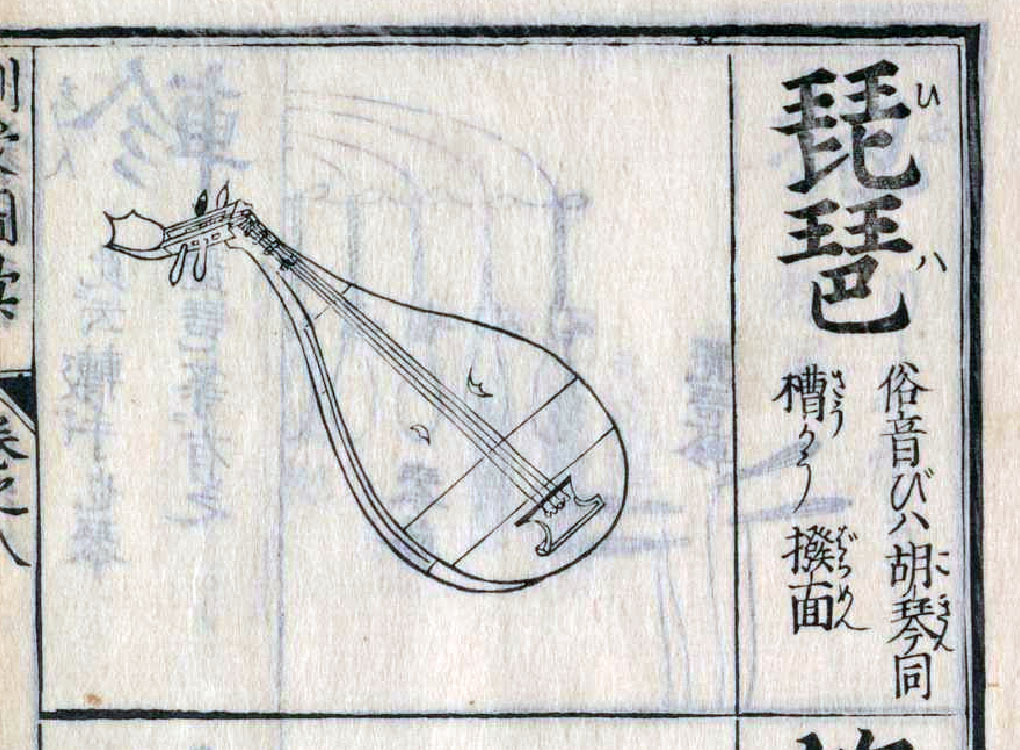 琵琶
ひ
ハ
俗音びハ胡琴同
こきん
槽
さう
撥面
ばちめん
巻之八